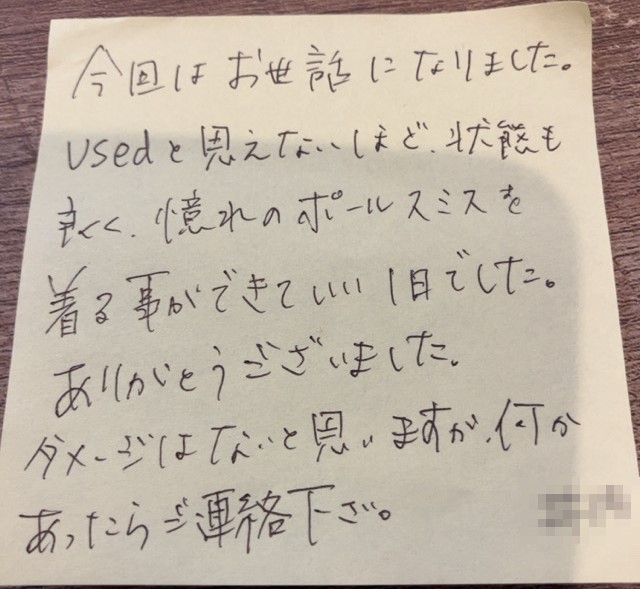 今回はお世話になりました。
usedと思えないほど、状態も
良く、憧れのポールスミスを
着る事ができていい1日でした。
ありがとうございました。
ダメージはないと思いますが、何か
あったらご連絡下さい。